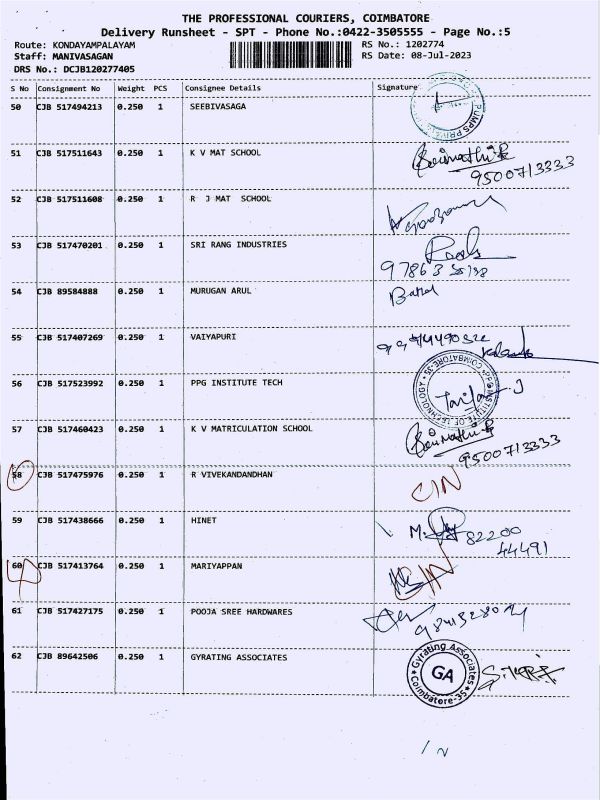 THE PROFESSIONAL COURIERS, COIMBATORE
Delivery Runsheet - SPT - Phone No.:0422-3505555 - Page No.:5
Route: KONDAYAMPALAYAM RS No.: 1202774
Staff: MANIVASAGAN RS Date: 08-Jul-2023
DRS No.: DCJB120277405
S No Consignment No Weight PCS Consignee Details Signature
50 CJB 517494213 0.250 1 SEEBIVASAGA
51 CJB 517511643 0.250 1 K V MAT SCHOOL
9500713333
52 CJB 517511608 0.250 1 R J MAT SCHOOL
53 CJB 517470201 0.250 1 SRI RANG INDUSTRIES
54 CJB 89584888 0.250 1 MURUGAN ARUL
55 CJB 517407269 0.250 1 VAIYAPURI
56 CJB 517523992 0.250 1 PPG INSTITUTE TECH
PPG INSTITUTE OF TECHNOLOGY COIMBATORE-35
57 CJB 517460423 0.250 1 K V MATRICULATION SCHOOL
9500713333
58 CJB 517475976 0.250 1 R VIVEKANDANDHAN
CIN
59 CJB 517438666 0.250 1 HINET
82200
44491
60 CJB 517413764 0.250 1 MARIYAPPAN
61 CJB 517427175 0.250 1 POOJA SREE HARDWARES
62 CJB 89642506 0.250 1 GYRATING ASSOCIATES
Gyrating Associates
GA
Coimbatore-35